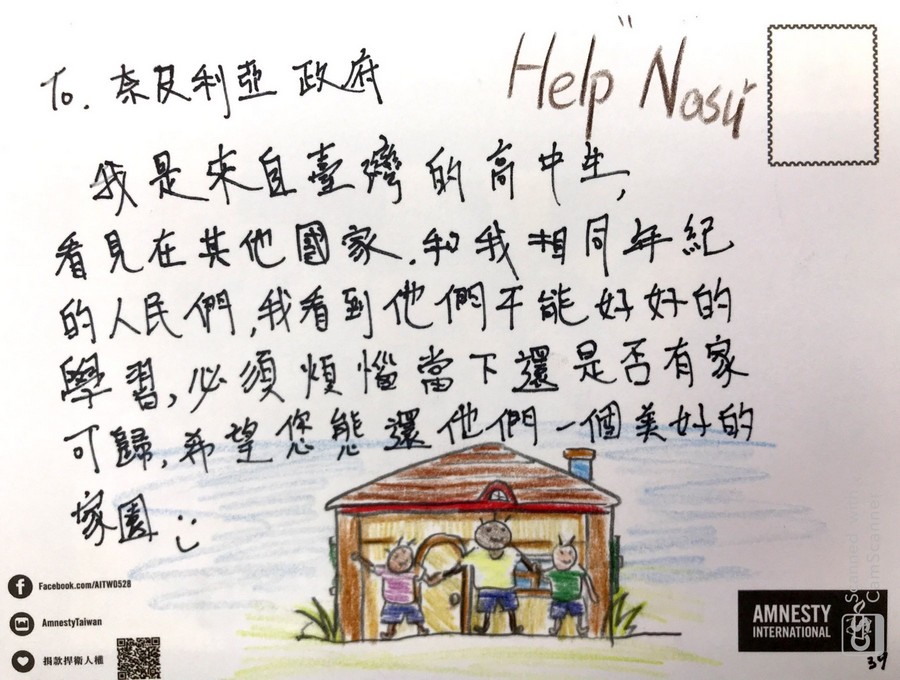 "Help Nosu"
To. 奈及利亞 政府
我是來自臺灣的高中生,
看見在其他國家,和我相同年紀
的人民們,我看到他們不能好好的
學習,必須煩惱當下還是否有家
可歸,希望您能還他們一個美好的
家園
Facebook.com/AITW0528
AmnestyTaiwan
捐款捍衛人權
AMNESTY
INTERNATIONAL
CS
Scanned with
CamScanner
39